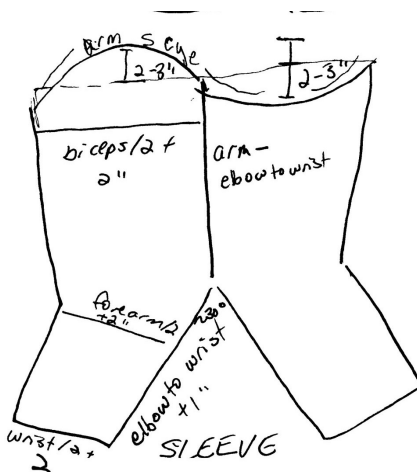 arm scye
2-3"
2-3"
biceps/2 +
2"
arm -
elbow to wrist
forearm/2
+2"
~30°
elbow to wrist
+1"
wrist/2 +
2
SLEEVE